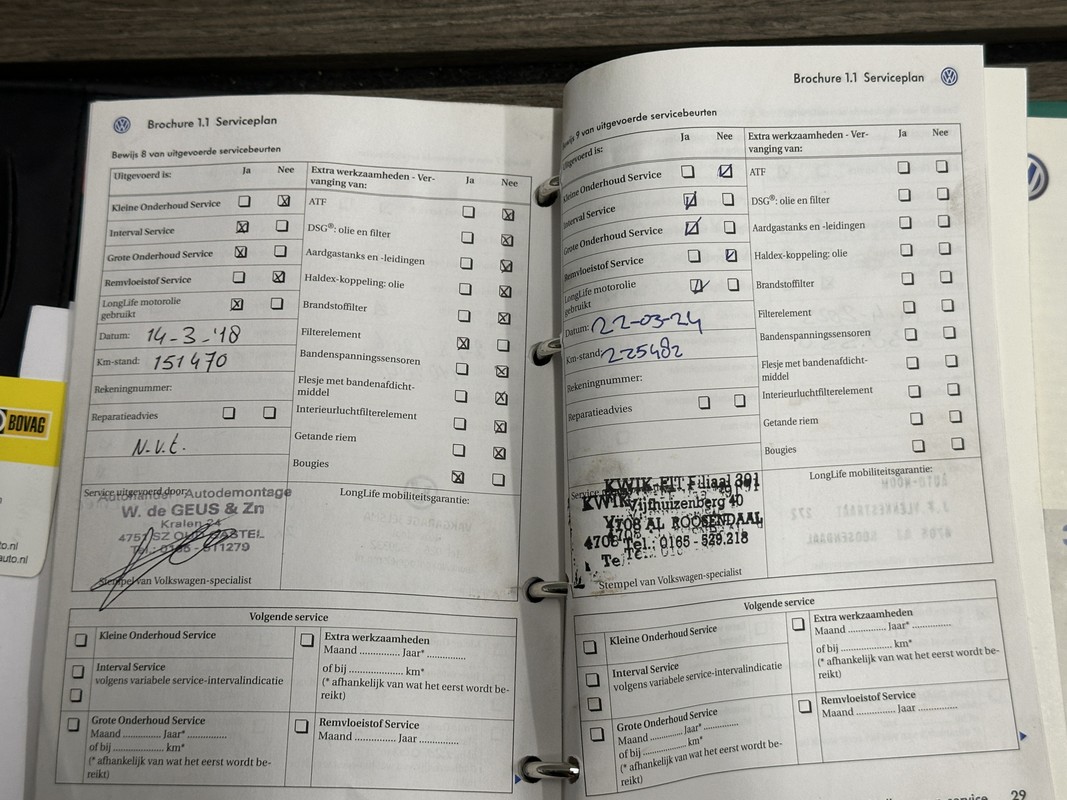 Brochure 1.1 Serviceplan
Bewijs 8 van uitgevoerde servicebeurten
Uitgevoerd is: Ja Nee
Extra werkzaamheden - Ver-
vanging van: Ja Nee
Kleine Onderhoud Service
Interval Service
Grote Onderhoud Service
Remvloeistof Service
LongLife motorolie
gebruikt
Datum: 14-3-'18
Km-stand: 151470
Rekeningnummer:
Reparatieadvies
N.v.t.
ATF
DSG®: olie en filter
Aardgastanks en -leidingen
Haldex-koppeling: olie
Brandstoffilter
Filterelement
Bandenspanningssensoren
Flesje met bandenafdicht-
middel
Interieurluchtfilterelement
Getande riem
Bougies
Service uitgevoerd door:
Autohandel - Autodemontage
W. de GEUS & Zn
Kralen 24
4751 SZ OUD GASTEL
Tel.: 0165 - 511279
Stempel van Volkswagen-specialist
LongLife mobiliteitsgarantie:
Volgende service
Kleine Onderhoud Service
Interval Service
volgens variabele service-intervalindicatie
Grote Onderhoud Service
Maand ............. Jaar* .............
of bij ..................... km*
(* afhankelijk van wat het eerst wordt be-
reikt)
Extra werkzaamheden
Maand ............. Jaar* .............
of bij ..................... km*
(* afhankelijk van wat het eerst wordt be-
reikt)
Remvloeistof Service
Maand ............. Jaar .............
BOVAG
to.nl
auto.nl
Brochure 1.1 Serviceplan
Bewijs 9 van uitgevoerde servicebeurten
Uitgevoerd is: Ja Nee
Extra werkzaamheden - Ver-
vanging van: Ja Nee
Kleine Onderhoud Service
Interval Service
Grote Onderhoud Service
Remvloeistof Service
LongLife motorolie
gebruikt
Datum: 22-03-24
Km-stand: 225482
Rekeningnummer:
Reparatieadvies
ATF
DSG®: olie en filter
Aardgastanks en -leidingen
Haldex-koppeling: olie
Brandstoffilter
Filterelement
Bandenspanningssensoren
Flesje met bandenafdicht-
middel
Interieurluchtfilterelement
Getande riem
Bougies
Service
KWIK-FIT Filiaal 391
Vijfhuizenberg 40
4708 AL ROOSENDAAL
Tel.: 0165 - 529.218
Stempel van Volkswagen-specialist
LongLife mobiliteitsgarantie:
Volgende service
Kleine Onderhoud Service
Interval Service
volgens variabele service-intervalindicatie
Grote Onderhoud Service
Maand ............. Jaar* .............
of bij ..................... km*
(* afhankelijk van wat het eerst wordt be-
reikt)
Extra werkzaamheden
Maand ............. Jaar* .............
of bij ..................... km*
(* afhankelijk van wat het eerst wordt be-
reikt)
Remvloeistof Service
Maand ............. Jaar .............
service 29